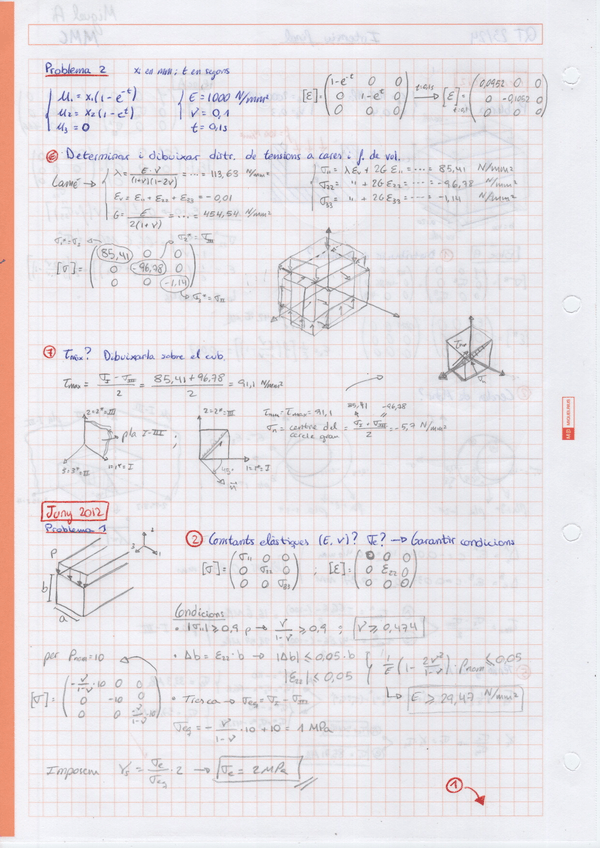 Problema 2 xi en mm; t en segons
μ1 = x1(1-e^-t)
μ2 = x2(1-e^t)
μ3 = 0
E = 1000 N/mm²
ν = 0,1
t = 0,1s
[E] = (1-e^-t 0 0
0 1-e^t 0
0 0 0)
t=0,1s
[E] = (0,0952 0 0
0 -0,1052 0
0 0 0)
⑥ Determinar i dibuixar distr. de tensions a cares i f. de vol.
Lamé → λ = E·ν/((1+ν)(1-2ν)) = ... = 113,63 N/mm²
Ev = E11 + E22 + E33 = -0,01
G = E/(2(1+ν)) = ... = 454,54 N/mm²
σ11 = λEv + 2G E11 = ... = 85,41 N/mm²
σ22 = " + 2G E22 = ... = -96,78 N/mm²
σ33 = " + 2G E33 = ... = -1,14 N/mm²
[σ] = (85,41 0 0
0 -96,78 0
0 0 -1,14)
⑦ τmàx? Dibuixarla sobre el cub.
τmax = (σI - σIII)/2 = (85,41+96,78)/2 = 91,1 N/mm²
2=2*=III
pla I-III
3=3*=II
1=1*=I
;
2=2*=III
45
1=1*=I
n
τmax = 91,1
85,41 -96,78
σn = centre del cercle gran = (σI + σIII)/2 = -5,7 N/mm²
Juny 2012
Problema 1
P
b
a
② Constants elàstiques (E, ν)? σe? → Garantir condicions
[σ] = (σ11 0 0
0 σ22 0
0 0 σ33)
; [E] = (0 0 0
0 E22 0
0 0 0)
Condicions
• |σ11| ≥ 0,9 p → ν/(1-ν) ≥ 0,9 ; ν ≥ 0,474
• Δb = E22·b → |Δb| ≤ 0,05·b
|E22| ≤ 0,05
1/E (1 - 2ν²/(1-ν))·pnom ≤ 0,05
E ≥ 29,47 N/mm²
per Pnom = 10
[σ] = (-ν/(1-ν)·10 0 0
0 -10 0
0 0 -ν/(1-ν)·10)
• Tresca → σeq = σI - σIII
σeq = -ν/(1-ν)·10 + 10 = 1 MPa
Imposem γs = σe/σeq = 2 → σe = 2 MPa
①